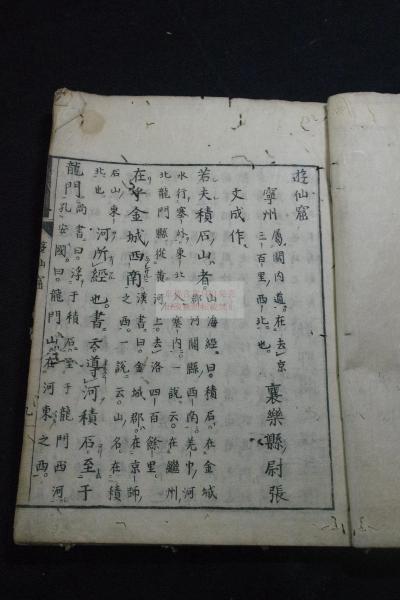 遊仙窟
寧州 屬關内道。在去京三百里。西北也。 襄樂縣尉張
文成作
若夫積石山者 山海經曰。積石在金城郡河關縣西南羌中。河水行塞外。東北入塞内。一說云。在鄯州龍門縣。從黄河上去洛四百餘里。
在乎金城西南 漢書曰。金城郡在京師之西。一說云。山名。在積石山東北也。
河所經也。書云導河積石至于
龍門 尚書曰。浮于積石。至于龍門西河。孔安國曰。龍門山在河東之西。
遊仙窟